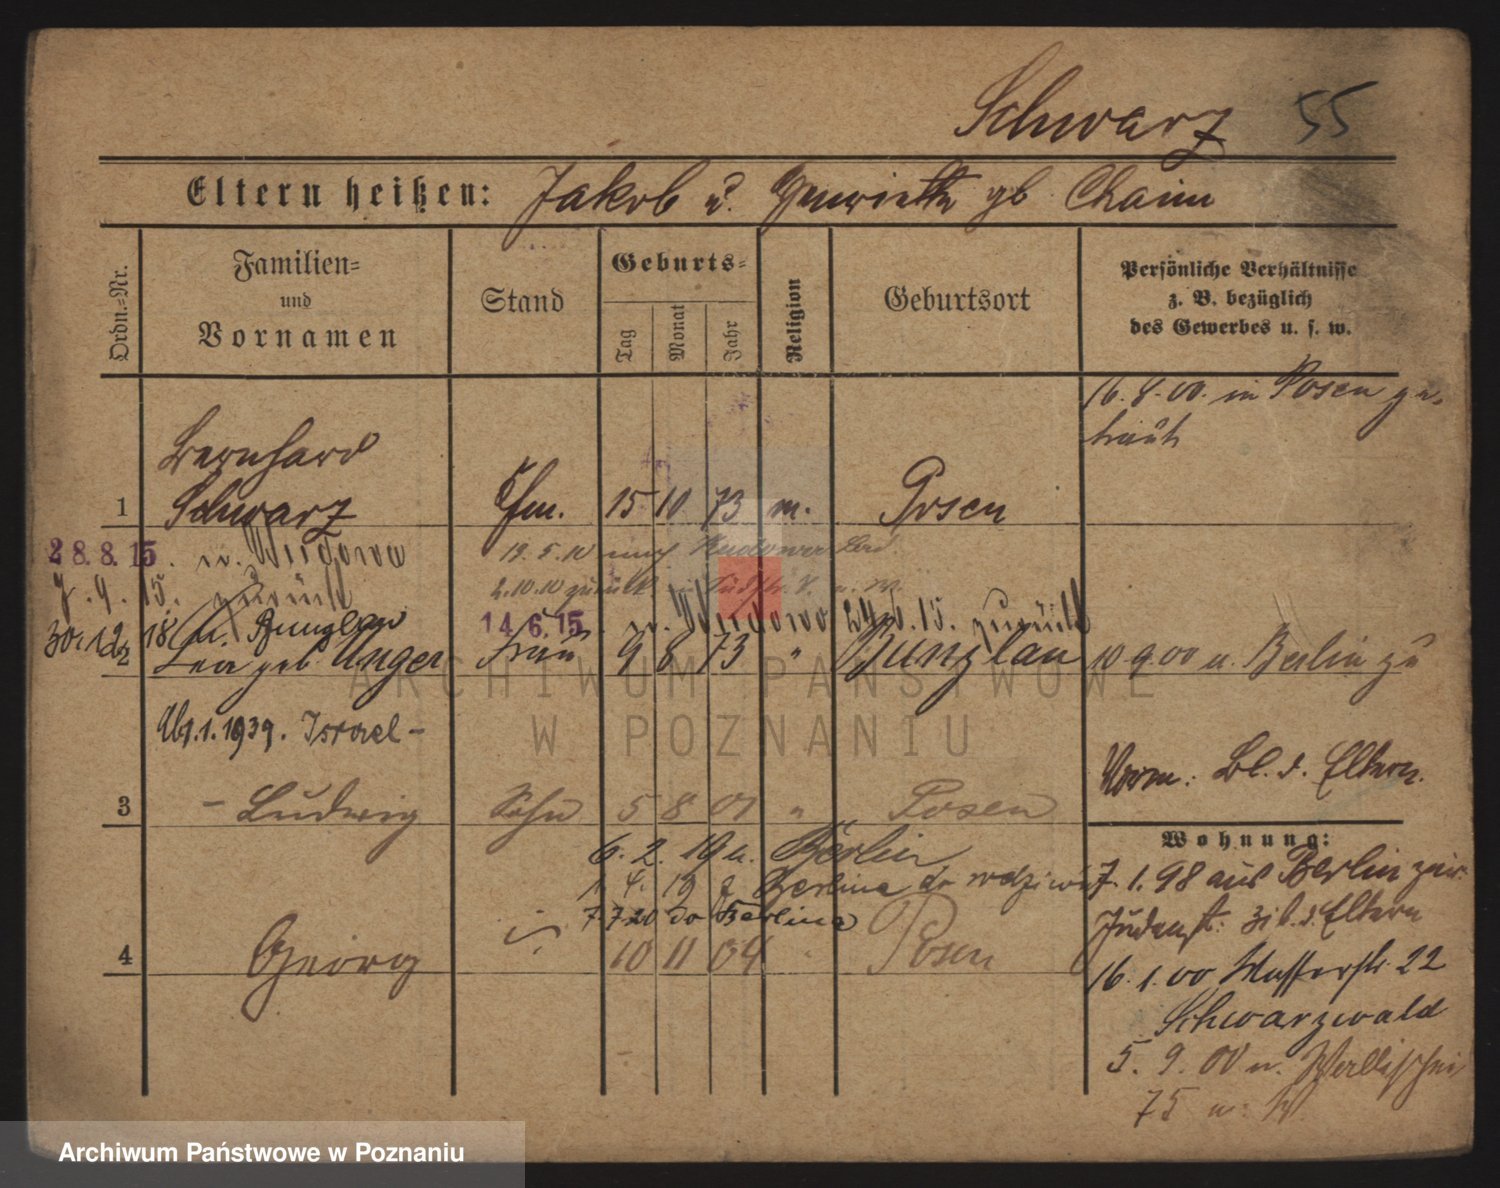 Schwarz 55
Eltern heißen: Jakob u. Henriette gb. Chaim
Ordn.-Nr.
Familien-
und
Vornamen
Stand
Geburts-
Tag
Monat
Jahr
Religion
Geburtsort
Persönliche Verhältnisse
z. B. bezüglich
des Gewerbes u. s. w.
16.8.00. in Posen ge-
traut
Bernhard
1 Schwarz Kfm. 15 10 73 m. Posen
28.8.15. n. Wudowo 19.5.10 nach
7.9.15. zurück 2.10.10 zurück
30.12.18 n. Bunzlau 14.6.15. n. Wudowo 29.6.15. zurück
2 Lea geb. Unger Frau 9 8 73 " Bunzlau 10 9 00 v. Berlin zu
Ab 1.1.1939. Israel-
Vorm: Bl. d. Eltern.
3 - Ludwig Sohn 5 8 01 " Posen
Wohnung:
6. 2. 19 n. Berlin
1. 4. 19 z Berlina do rodziców
7.7 20 do Berlina
7.1.98 aus Berlin zur.
Judenstr. 31 b. d. Eltern
4 Georg 10 11 04 Posen
16.1.00 Wasserstr. 22
Schwarzwald
5. 9. 00 n. Wallischei
75 m. W
ARCHIWUM PAŃSTWOWE
W POZNANIU
Archiwum Państwowe w Poznaniu